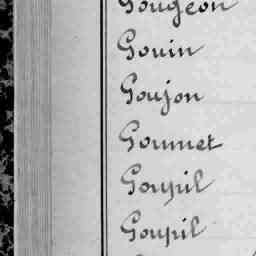 Gougeon
Gouin
Goujon
Goumet
Goupil
Goupil